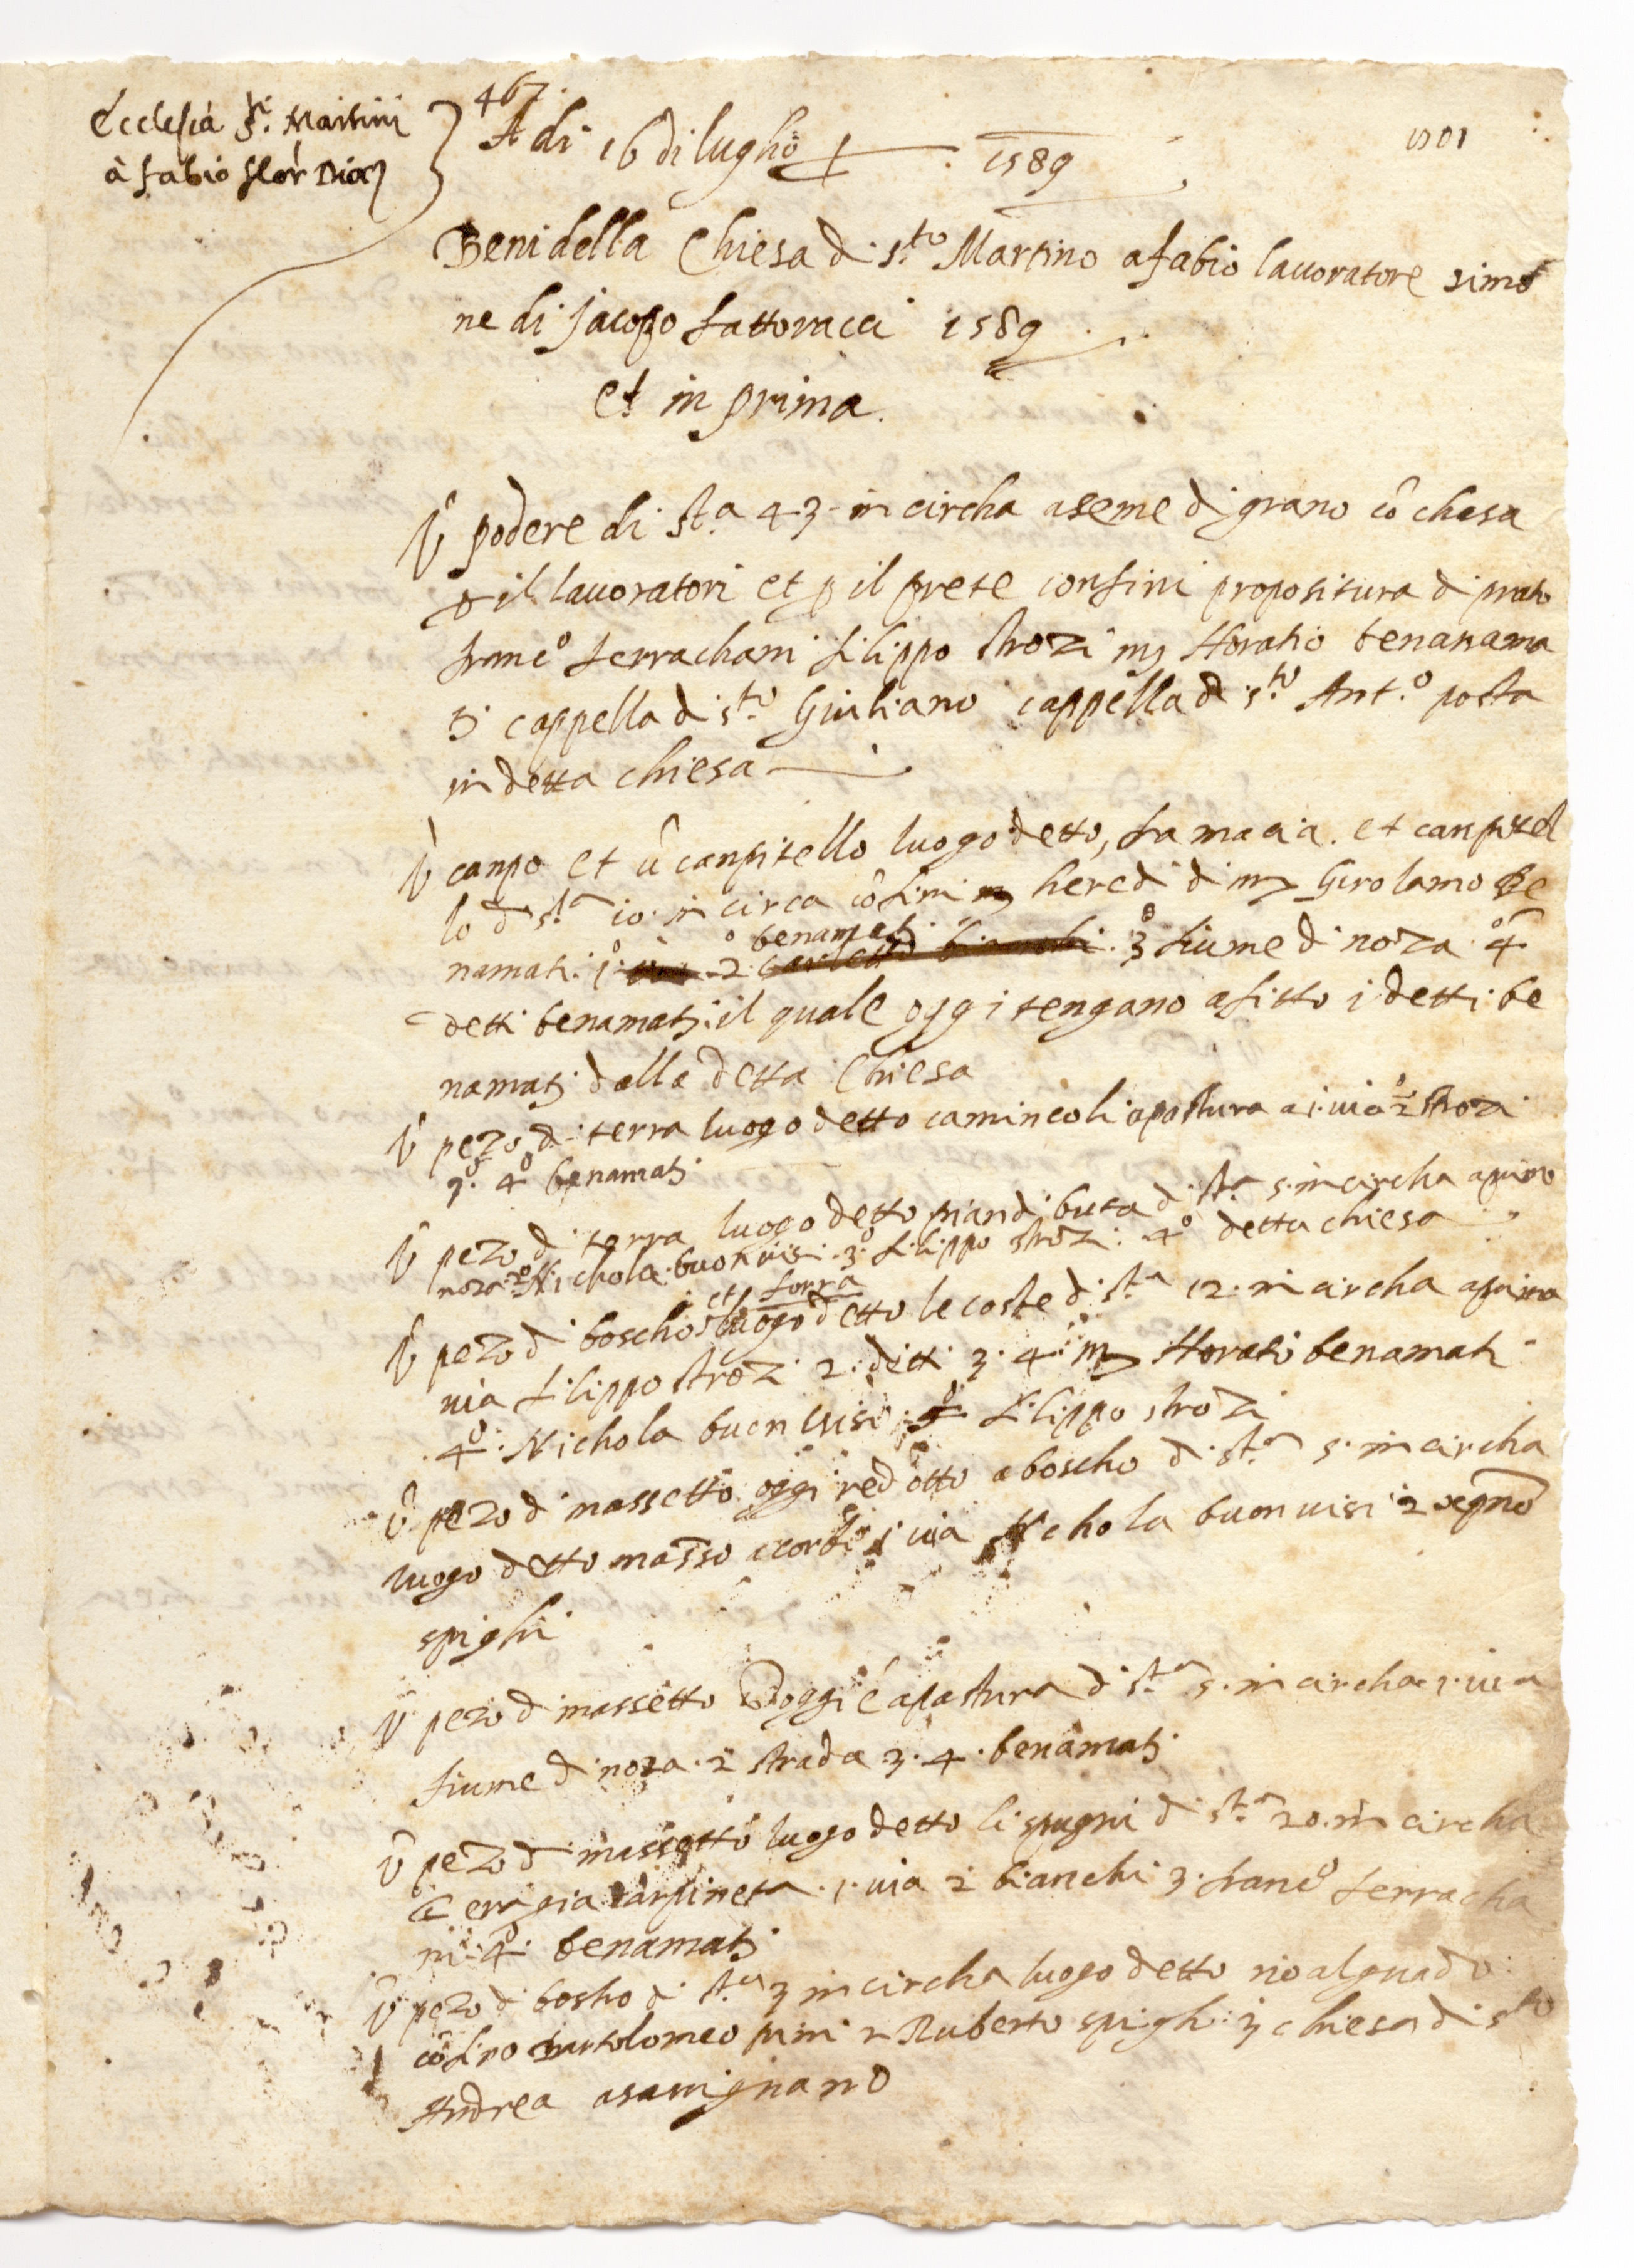 Ecclesia S.ti Martini
à fabio flor Dioc
467.
A di 16 di luglio 1589
1501
Beni della Chiesa di s.to Martino a fabio lauoratore simo
ne di Jacopo fattoracci 1589
et in prima.
Ũ podere di st.a 43 in circha a seme di grano cõ chasa
p il lauoratori et p il prete confini propositura di prato
franc.o ferrachani filippo strozi m Horatio benanama
ti cappella di s.to Giuliano cappella di s.to Ant.o posta
in detta chiesa
Ũ canpo et ũ canpitello luogo detto, la macia. et canpitel
lo di st.a 10. in circa cõfini heredi di m Girolamo be
benamati
namati. 1.o 2.o 3.o fiume di noza 4.o
detti benamati. il quale oggi tengano afitto i detti be
namati dalla detta Chiesa
Ũ pezo di terra luogo detto camincoli apastura a 1. uia 2.o strozi
3.o 4.o benamati
Ũ pezo di terra luogo detto piandibuta di st.a 5. in circha aprimo
noza 2.o Nichola buonuisi. 3.o filippo strozi. 4.o detta chiesa
et forra
Ũ pezo di boscho luogo detto le coste di st.a 12. in circha aprima
uia filippo strozi 2. detti 3. 4. m Horatio benamati
4.o Nichola buonuisi filippo strozi
Ũ pezo di massetto oggi redotto a boscho di st.a 5. in circha
luogo detto masso acorbi 1 uia Nichola buonuisi 2
spighi
Ũ pezo di massetto oggi è apastura di st.a 5. in circha 1. uia
fiume di noza. 2 strada 3. 4. benamati
Ũ pezo di massetto luogo detto li spugni di st.a 20. in circha
carpineta. 1. uia 2 bianchi 3. franc.o ferracha
ni. 4.o benamati
Ũ pezo di bosho di st.a 3 in circha luogo detto rio alguado
cõfino Bartolomeo pini 2 Ruberto spighi. 3 chiesa di s.to
Andrea asauignano